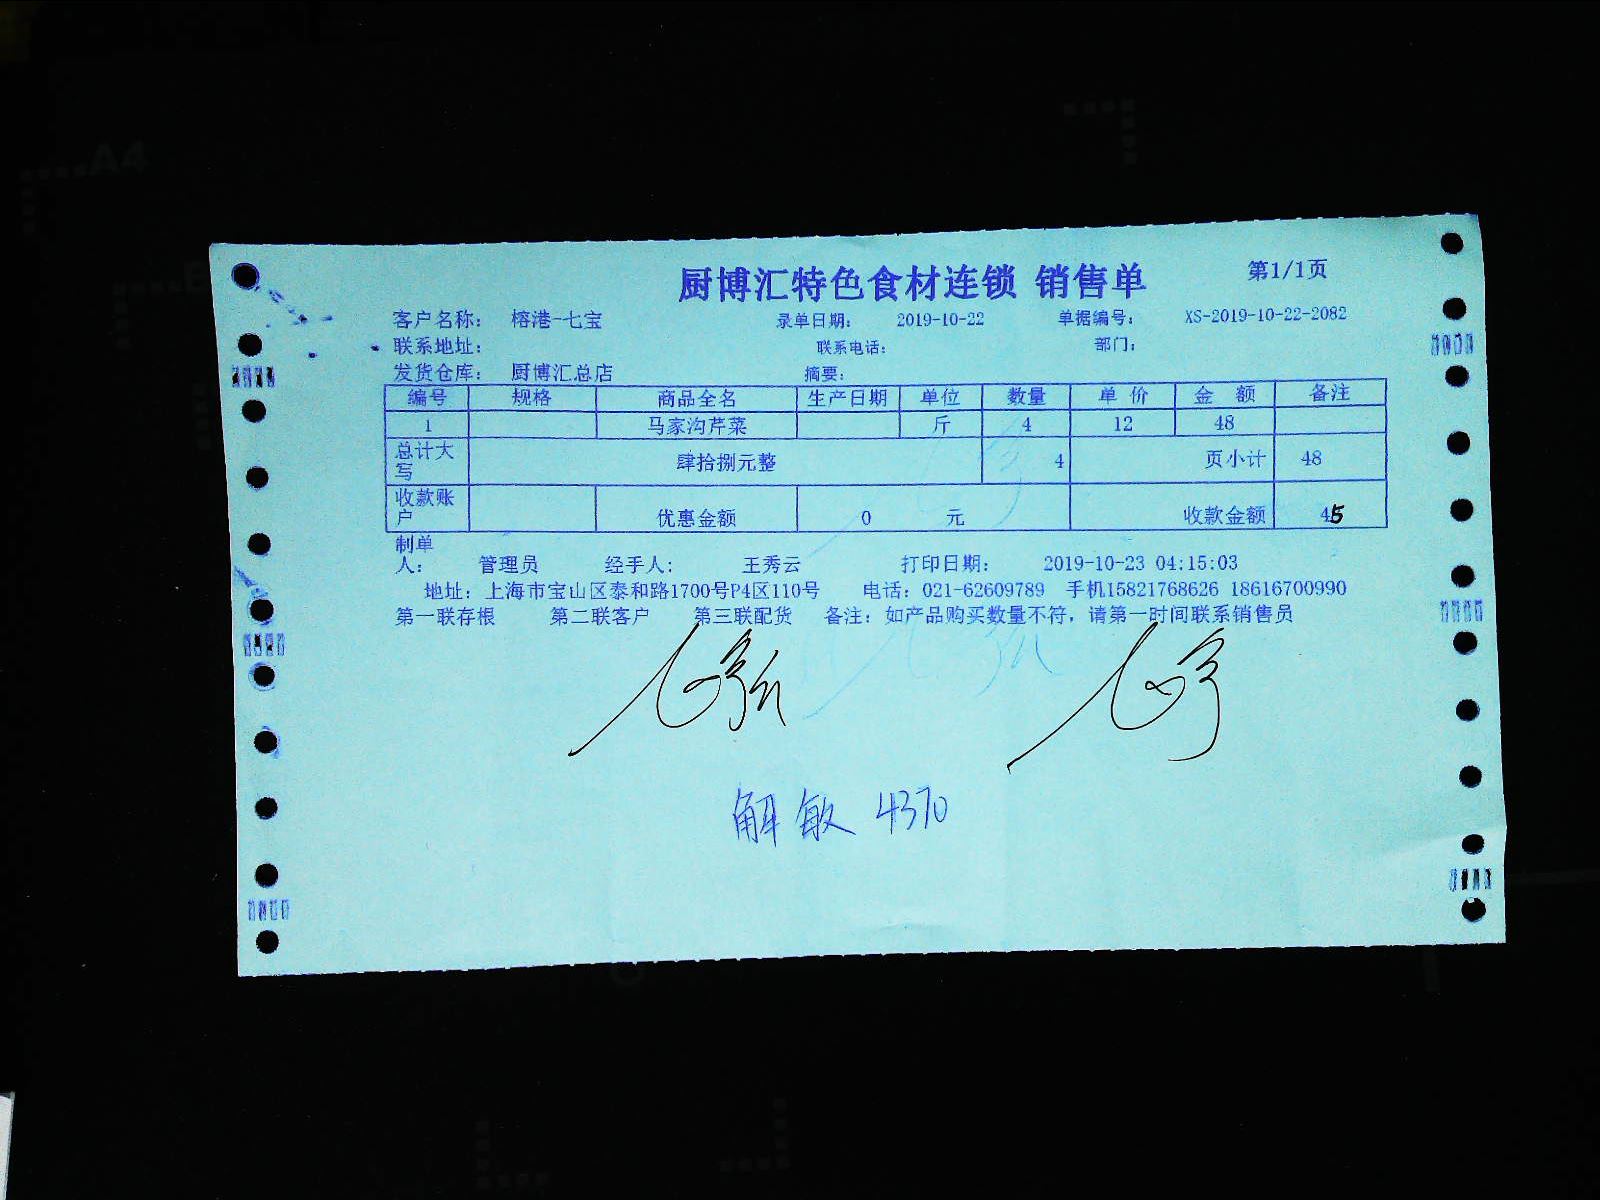 厨博汇特色食材连锁 销售单 第1/1页
客户名称： 榕港-七宝 录单日期： 2019-10-22 单据编号： XS-2019-10-22-2082
联系地址： 联系电话： 部门：
发货仓库： 厨博汇总店 摘要：
编号 规格 商品全名 生产日期 单位 数量 单 价 金 额 备注
1 马家沟芹菜 斤 4 12 48
总计大写 肆拾捌元整 4 页小计 48
收款账户 优惠金额 0 元 收款金额 45
制单人： 管理员 经手人： 王秀云 打印日期： 2019-10-23 04:15:03
地址：上海市宝山区泰和路1700号P4区110号 电话：021-62609789 手机15821768626 18616700990
第一联存根 第二联客户 第三联配货 备注：如产品购买数量不符，请第一时间联系销售员
解敏 4370